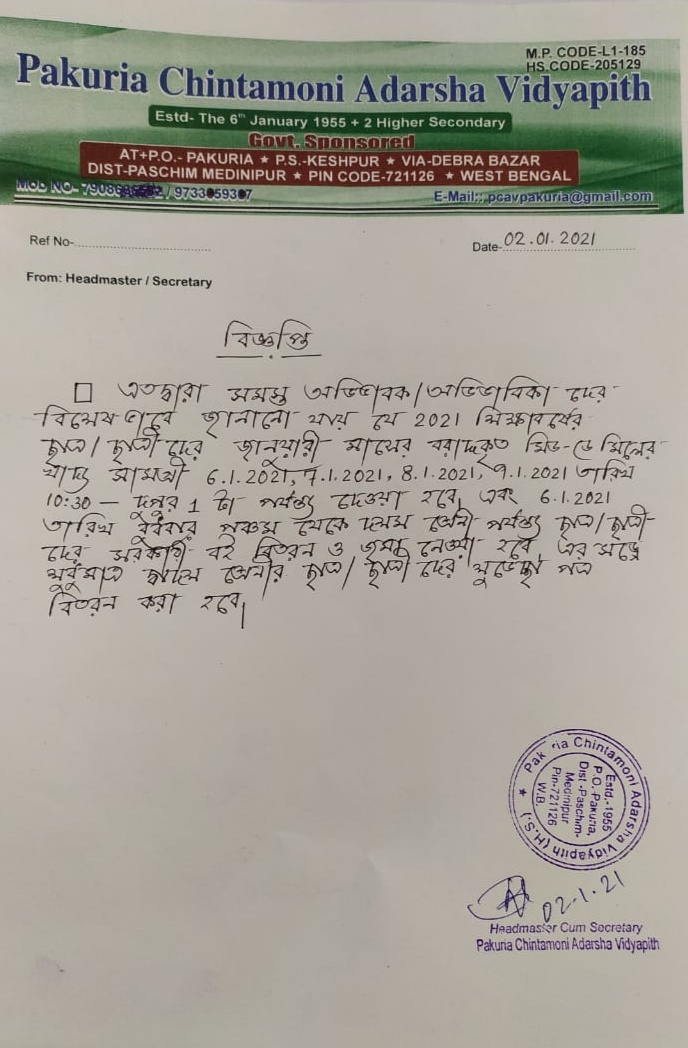 M.P. CODE-L1-185
HS.CODE-205129
Pakuria Chintamoni Adarsha Vidyapith
Estd- The 6th January 1955 + 2 Higher Secondary
Govt. Sponsored
AT+P.O.- PAKURIA ★ P.S.-KESHPUR ★ VIA-DEBRA BAZAR
DIST-PASCHIM MEDINIPUR ★ PIN CODE-721126 ★ WEST BENGAL
MOB NO- / 9733 E-Mail:: pcavpakuria@gmail.com
Ref No- Date- 02.01.2021
From: Headmaster / Secretary
বিজ্ঞপ্তি
এতদ্বারা সমস্ত অভিভাবক/অভিভাবিকা দের
বিশেষ ভাবে জানানো যায় যে 2021 শিক্ষাবর্ষের
ছাত্র/ছাত্রী দের জানুয়ারী মাসের বরাদ্দকৃত মিড-ডে মিলের
খাদ্য সামগ্রী 6.1.2021, 7.1.2021, 8.1.2021, 9.1.2021 তারিখ
10:30 — দুপুর 1 টা পর্যন্ত দেওয়া হবে, এবং 6.1.2021
তারিখ বুধবার পঞ্চম থেকে দশম শ্রেনী পর্যন্ত ছাত্র/ছাত্রী-
দের সরকারী বই বিতরন ও জমা নেওয়া হবে, এর সঙ্গে
শুধুমাত্র দ্বাদশ শ্রেনীর ছাত্র/ছাত্রী দের শুভেচ্ছা পত্র
বিতরন করা হবে,
Pakuria Chintamoni Adarsha Vidyapith (H.S.) ★
Estd.-1955
P.O.-Pakuria,
Dist.-Paschim-
Medinipur
Pin-721126
W.B.
02-1-21
Headmaster Cum Secretary
Pakuria Chintamoni Adarsha Vidyapith